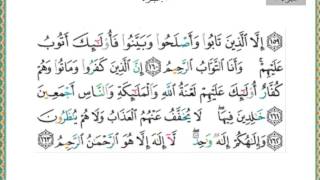 إِلَّا الَّذِينَ تَابُوا وَأَصْلَحُوا وَبَيَّنُوا فَأُولَٰئِكَ أَتُوبُ
عَلَيْهِمْ وَأَنَا التَّوَّابُ الرَّحِيمُ ١٦٠ إِنَّ الَّذِينَ كَفَرُوا وَمَاتُوا وَهُمْ
كُفَّارٌ أُولَٰئِكَ عَلَيْهِمْ لَعْنَةُ اللَّهِ وَالْمَلَائِكَةِ وَالنَّاسِ أَجْمَعِينَ
١٦١ خَالِدِينَ فِيهَا لَا يُخَفَّفُ عَنْهُمُ الْعَذَابُ وَلَا هُمْ يُنظَرُونَ
١٦٢ وَإِلَٰهُكُمْ إِلَٰهٌ وَاحِدٌ لَّا إِلَٰهَ إِلَّا هُوَ الرَّحْمَٰنُ الرَّحِيمُ ١٦٣